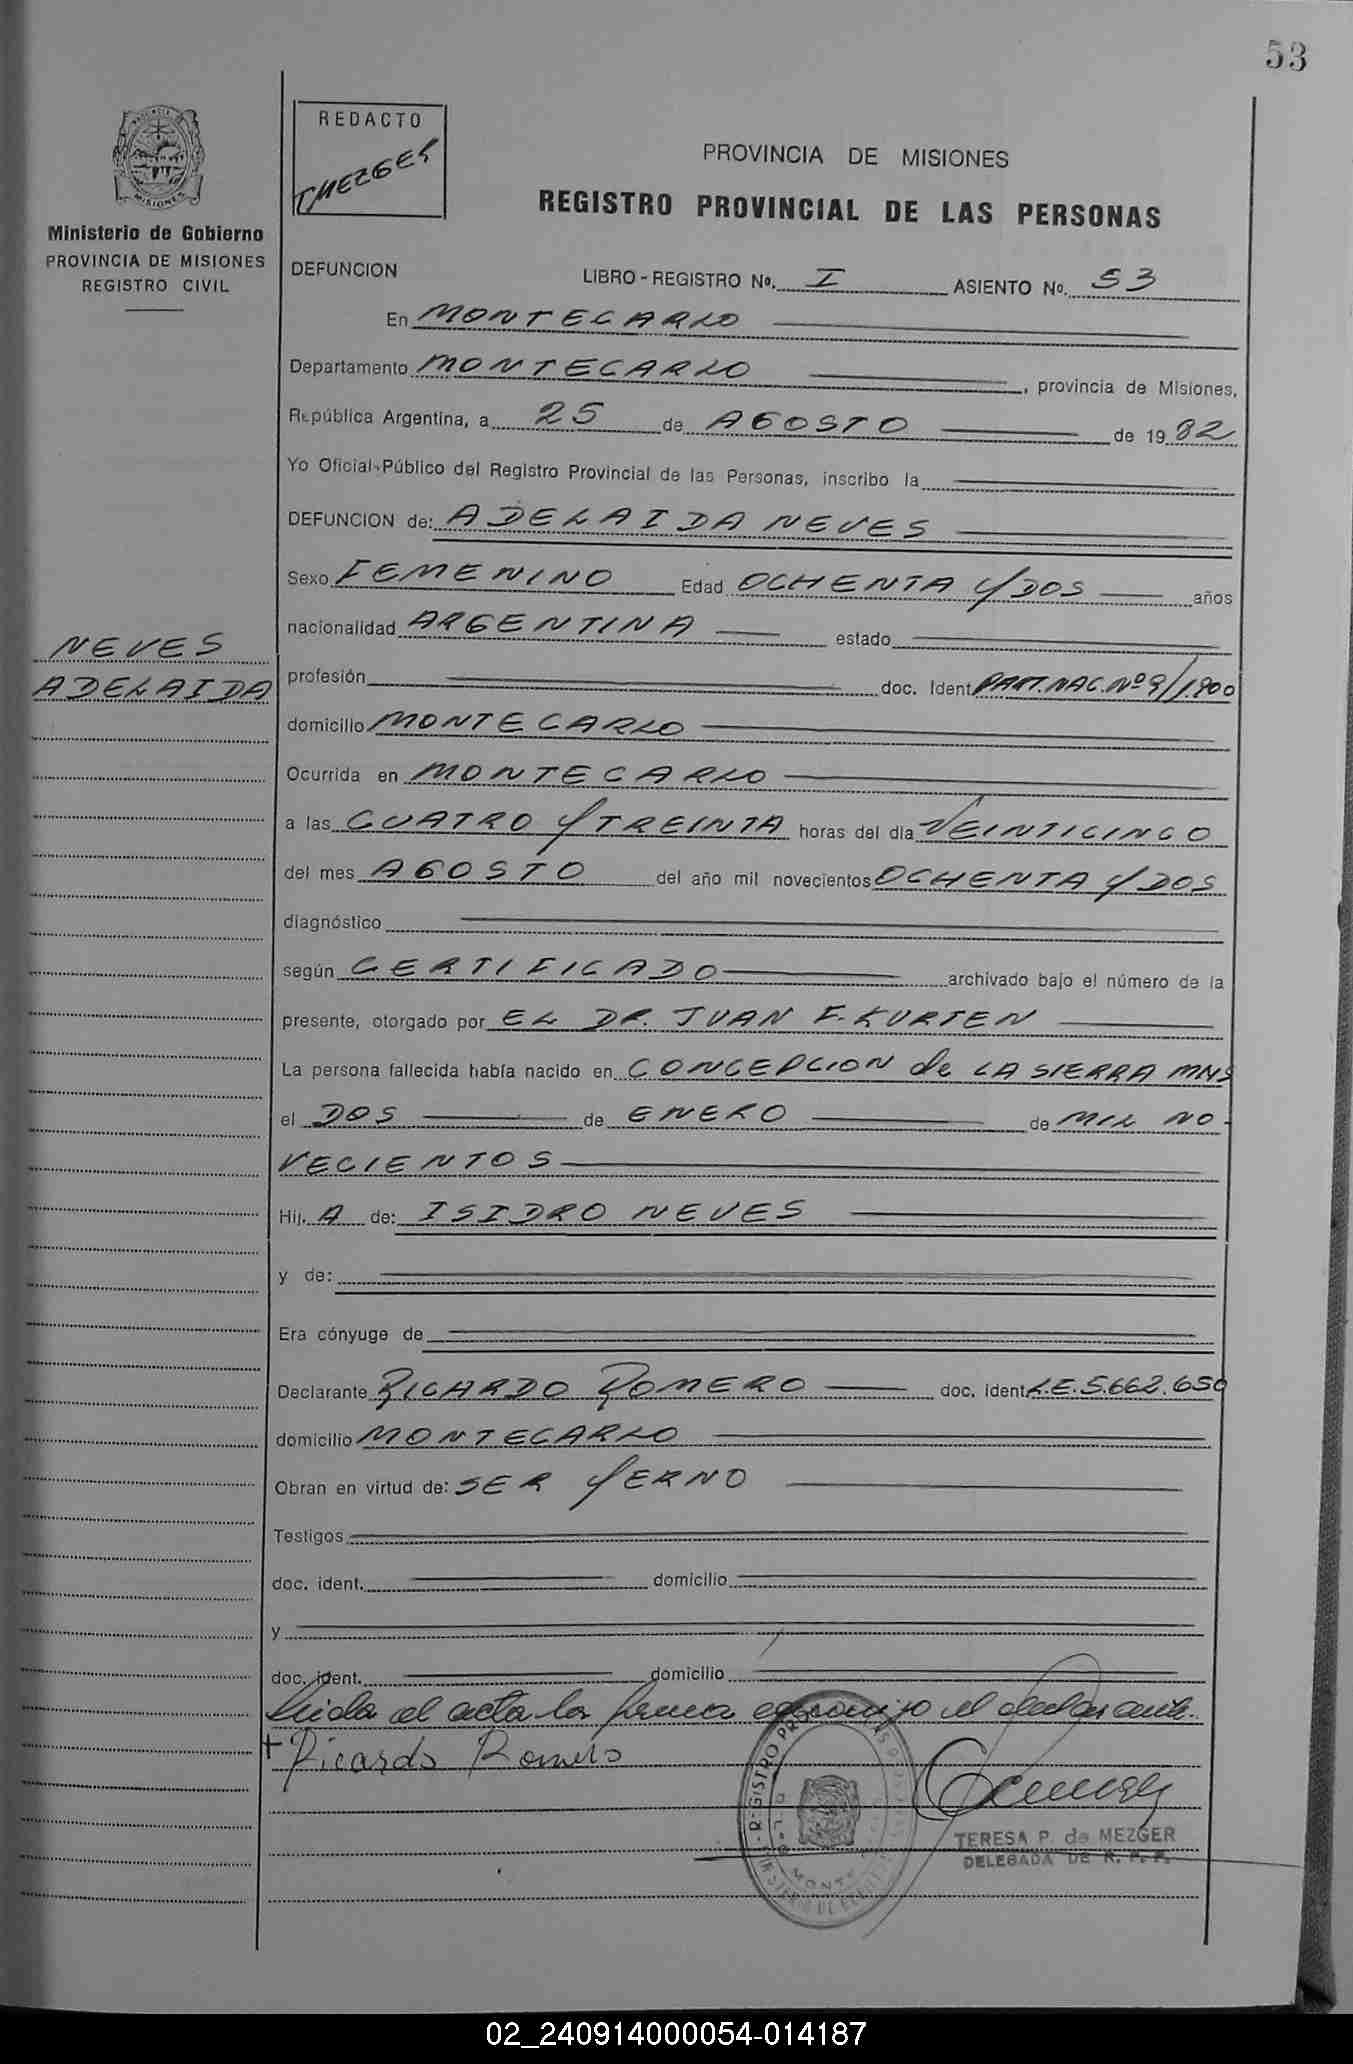 53
REDACTO
TMEZGER
PROVINCIA DE MISIONES
REGISTRO PROVINCIAL DE LAS PERSONAS
MISIONES
Ministerio de Gobierno
PROVINCIA DE MISIONES
REGISTRO CIVIL
DEFUNCION LIBRO-REGISTRO Nº. I ASIENTO Nº. 53
En MONTECARLO
Departamento MONTECARLO, provincia de Misiones,
República Argentina, a 25 de AGOSTO de 1982
Yo Oficial Público del Registro Provincial de las Personas, inscribo la
DEFUNCION de: ADELAIDA NEVES
Sexo FEMENINO Edad OCHENTA Y DOS años
nacionalidad ARGENTINA estado
NEVES
ADELAIDA
profesión doc. Ident PART. NAC. Nº 9/1900
domicilio MONTECARLO
Ocurrida en MONTECARLO
a las CUATRO Y TREINTA horas del día VEINTICINCO
del mes AGOSTO del año mil novecientos OCHENTA Y DOS
diagnóstico
según CERTIFICADO archivado bajo el número de la
presente, otorgado por EL DR. JUAN F. KURTEN
La persona fallecida había nacido en CONCEPCION de LA SIERRA MNS
el DOS de ENERO de MIL NO-
VECIENTOS
Hij. A de: ISIDRO NEVES
y de:
Era cónyuge de
Declarante RICARDO ROMERO doc. ident L.E. 5.662.650
domicilio MONTECARLO
Obran en virtud de: SER YERNO
Testigos
doc. ident. domicilio
y
doc. ident. domicilio
Leida el acta la firma conmigo el declarante.
+ Ricardo Romero
TERESA P. de MEZGER
DELEGADA DE R. P. P.
02_240914000054-014187